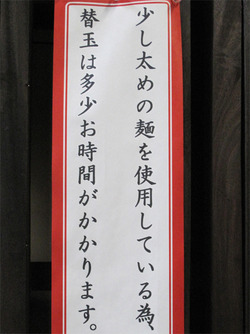 少し太めの麺を使用している為、
替玉は多少お時間がかかります。